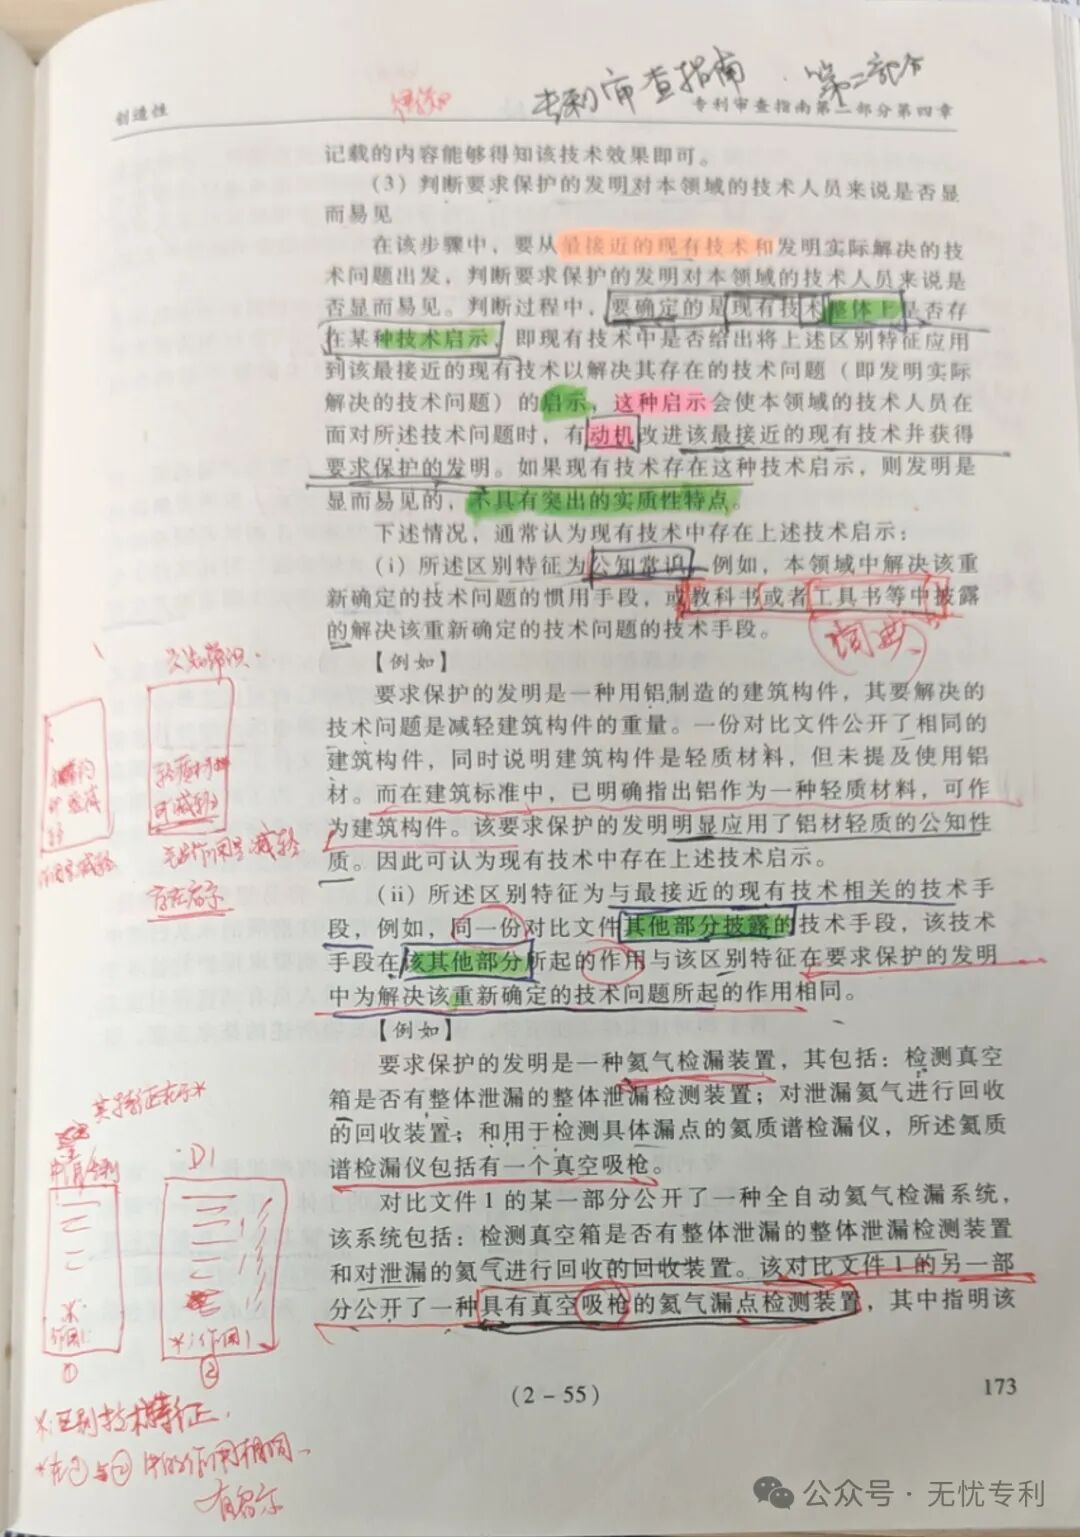 专利审查指南 第二部分
创造性
专利审查指南第二部分第四章
记载的内容能够得知该技术效果即可。
(3)判断要求保护的发明对本领域的技术人员来说是否显
而易见
在该步骤中，要从最接近的现有技术和发明实际解决的技
术问题出发，判断要求保护的发明对本领域的技术人员来说是
否显而易见。判断过程中，要确定的是现有技术整体上是否存
在某种技术启示，即现有技术中是否给出将上述区别特征应用
到该最接近的现有技术以解决其存在的技术问题（即发明实际
解决的技术问题）的启示，这种启示会使本领域的技术人员在
面对所述技术问题时，有动机改进该最接近的现有技术并获得
要求保护的发明。如果现有技术存在这种技术启示，则发明是
显而易见的，不具有突出的实质性特点。
下述情况，通常认为现有技术中存在上述技术启示：
(i)所述区别特征为公知常识，例如，本领域中解决该重
新确定的技术问题的惯用手段，或教科书或者工具书等中披露
的解决该重新确定的技术问题的技术手段。
词典
【例如】
要求保护的发明是一种用铝制造的建筑构件，其要解决的
技术问题是减轻建筑构件的重量。一份对比文件公开了相同的
建筑构件，同时说明建筑构件是轻质材料，但未提及使用铝
材。而在建筑标准中，已明确指出铝作为一种轻质材料，可作
为建筑构件。该要求保护的发明明显应用了铝材轻质的公知性
质。因此可认为现有技术中存在上述技术启示。
(ii)所述区别特征为与最接近的现有技术相关的技术手
段，例如，同一份对比文件其他部分披露的技术手段，该技术
手段在该其他部分所起的作用与该区别特征在要求保护的发明
中为解决该重新确定的技术问题所起的作用相同。
【例如】
要求保护的发明是一种氦气检漏装置，其包括：检测真空
箱是否有整体泄漏的整体泄漏检测装置；对泄漏氦气进行回收
的回收装置；和用于检测具体漏点的氦质谱检漏仪，所述氦质
谱检漏仪包括有一个真空吸枪。
对比文件1的某一部分公开了一种全自动氦气检漏系统，
该系统包括：检测真空箱是否有整体泄漏的整体泄漏检测装置
和对泄漏的氦气进行回收的回收装置。该对比文件1的另一部
分公开了一种具有真空吸枪的氦气漏点检测装置，其中指明该
公知常识
轻质材料
可减轻
存在启示
申请专利
D1
※
作用1
※:作用1
①
②
※:区别技术特征.
※在①与②中的作用相同
有启示
(2-55)
173
公众号·无忧专利